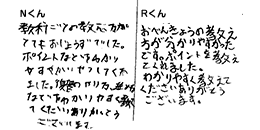 Nくん
教科ごとの教え方が
とてもおじょうずでした。
ポイントなどをわかり
やすくかいせつしてくれ
ました。
なども、わかりやすく教え
てくださいありがとう
ございました。
Rくん
おべんきょうの教え
方が分かりやすかった
です。ポイントを教え
てくれました。
わかりやすく教えて
くださいありがとう
ございます。